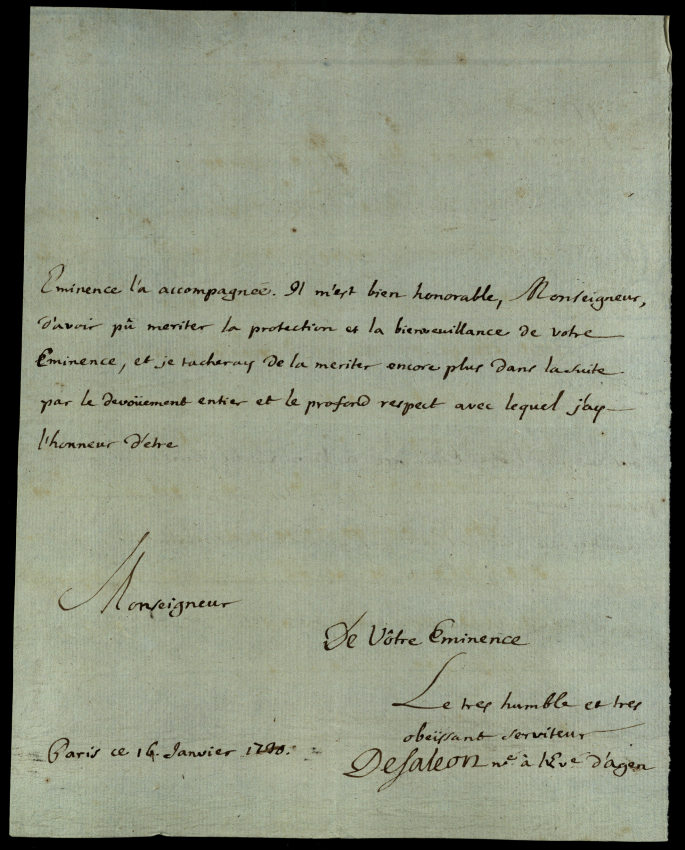 Eminence l'a accompagnée. Il m'est bien honorable, Monseigneur,
d'avoir pû meriter la protection et la bienveuillance de votre
Eminence, et je tacheray de la meriter encore plus dans la suite
par le devoüement entier et le profond respect avec lequel j'ay
l'honneur d'etre
Monseigneur
De Vôtre Eminence
Le tres humble et tres
obeissant serviteur
Paris ce 16. Janvier
DeSaleon né à l'Eve d'agen